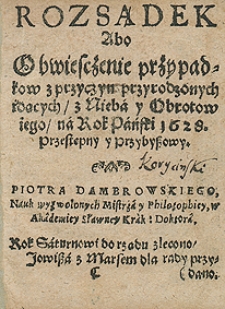 ROZSADEK
Abo
Obwiesczenie przypad-
kow z przyczyn przyrodzonych
idących / z Nieba y Obrotow
iego / ná Rok Páński 1628.
Przestępny y Przybyszowy.
Koryciński
PIOTRA DAMBROWSKIEGO,
Nauk wyzwolonych Mistrzá y Philosophiey, w
Akádemiey sławney Krák: Doktorá.
Rok Sáturnowi do rządu zlecono /
Jowiszá z Marsem dla rády przy-
C (dano.